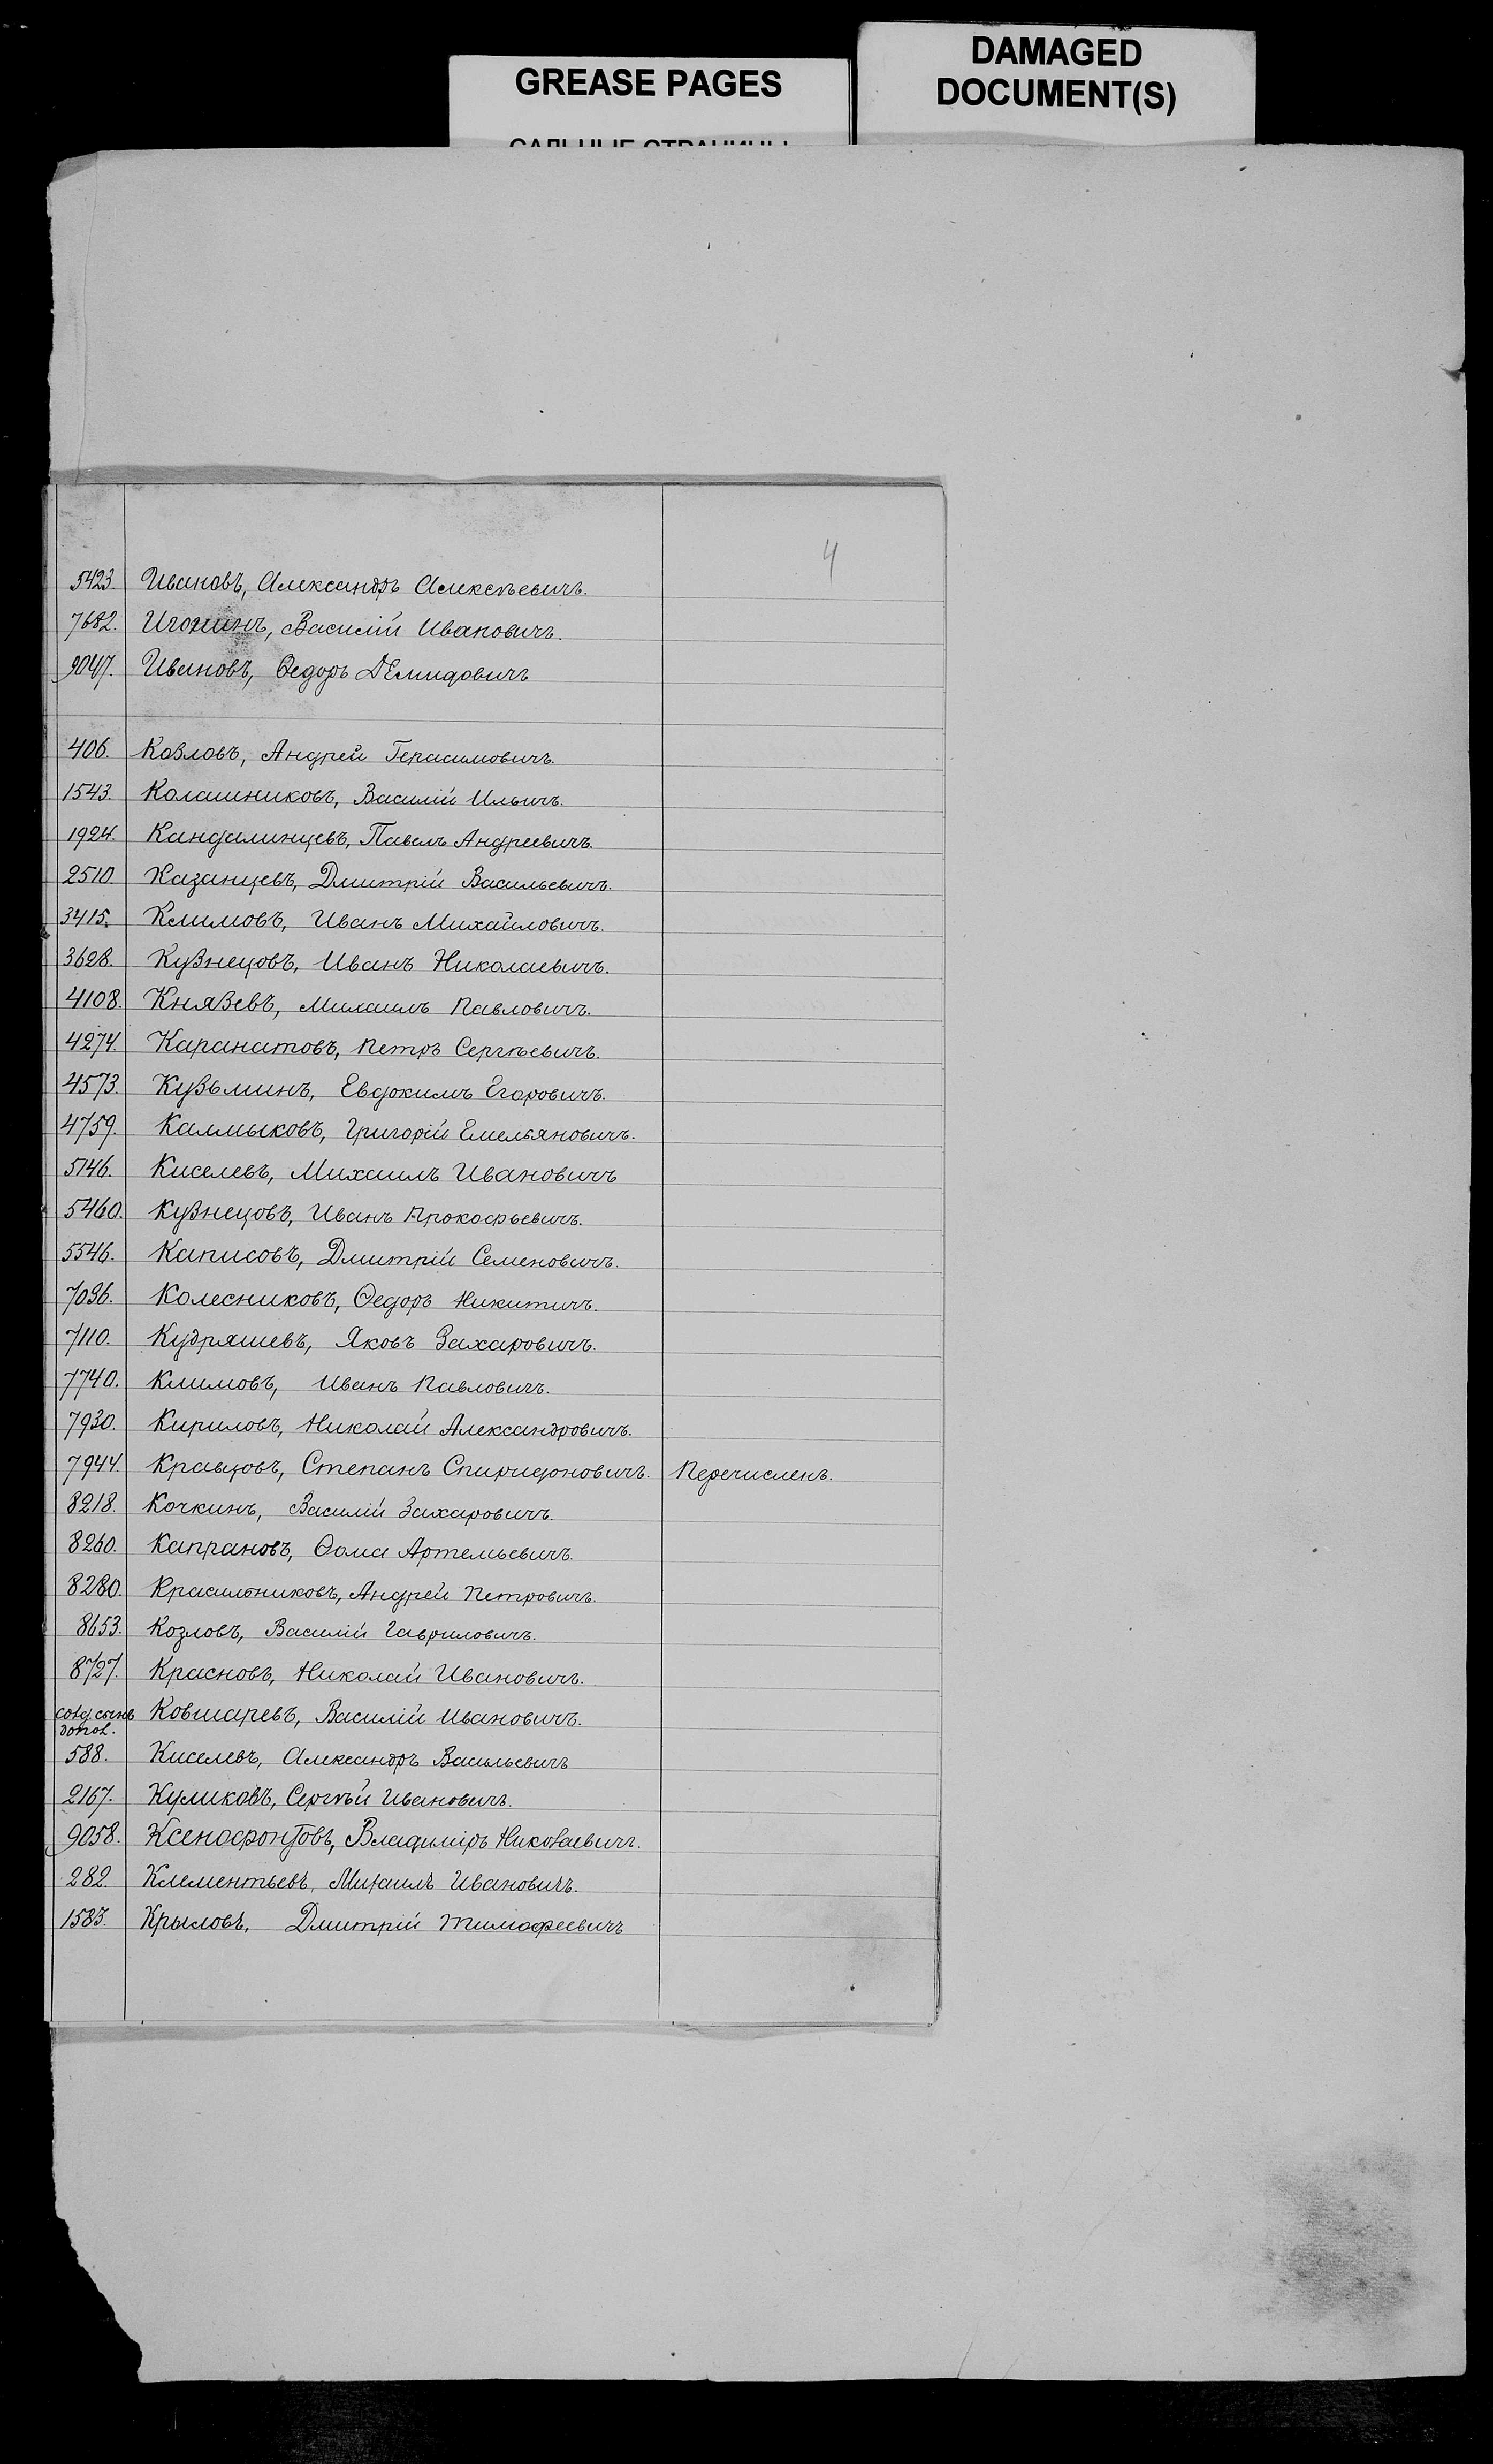 GREASE PAGES
DAMAGED
DOCUMENT(S)
САЛЬНЫЕ СТРАНИЦЫ
4
5423. Ивановъ, Александръ Алексѣевичъ.
7682. Игонинъ, Василій Ивановичъ.
9047. Ивановъ, Ѳедоръ Демидовичъ
406. Козловъ, Андрей Герасимовичъ.
1543. Колашниковъ, Василій Ильичъ.
1924. Кандалинцевъ, Павелъ Андреевичъ.
2510. Казанцевъ, Дмитрій Васильевичъ.
3415. Климовъ, Иванъ Михайловичъ.
3628. Кузнецовъ, Иванъ Николаевичъ.
4108. Князевъ, Михаилъ Павловичъ.
4274. Каранатовъ, Петръ Сергѣевичъ.
4573. Кузьминъ, Евдокимъ Егоровичъ.
4759. Калмыковъ, Григорій Емельяновичъ.
5146. Киселевъ, Михаилъ Ивановичъ
5460. Кузнецовъ, Иванъ Прокофьевичъ.
5546. Каписовъ, Дмитрій Семеновичъ.
7036. Колесниковъ, Ѳедоръ Никитичъ.
7110. Кудряшевъ, Яковъ Захаровичъ.
7740. Климовъ, Иванъ Павловичъ.
7930. Кириловъ, Николай Александровичъ.
7944. Кравцовъ, Степанъ Спиридоновичъ. Перечисленъ.
8218. Кочкинъ, Василій Захаровичъ.
8260. Капрановъ, Ѳома Артемьевичъ.
8280. Красильниковъ, Андрей Петровичъ.
8653. Козловъ, Василій Гавриловичъ.
8727. Красновъ, Николай Ивановичъ.
Ковшаревъ, Василій Ивановичъ.
588. Киселевъ, Александръ Васильевичъ
2167. Куликовъ, Сергѣй Ивановичъ.
9058. Ксенофонтовъ, Владиміръ Николаевичъ.
282. Клементьевъ, Михаилъ Ивановичъ.
1583. Крыловъ, Дмитрій Тимофеевичъ